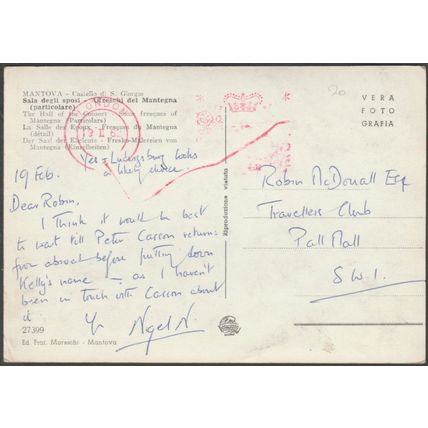 MANTOVA - Castello di S. Giorgio
Sala degli sposi - Affreschi del Mantegna
(particolare)
The Hall of the
Mantegna (Particulars)
La Salle des Epoux - Fresques du Mantegna
(détail)
Der Saal der
Mantegna (Einzelheiten)
LONDON
20
VERA
FOTO
GRAFIA
Yes = looks
a likely choice
19 Feb.
Dear Robin,
I think it would be best
to wait till Peter Carson returns
from abroad before putting down
Kelly's name — as I haven't
been in touch with Carson about
it
Yrs Nigel N.
Riproduzione vietata
Robin McDouall Esq
Travellers Club
Pall Mall
S.W.1.
27399
Ed. Frat. Moreschi - Mantova